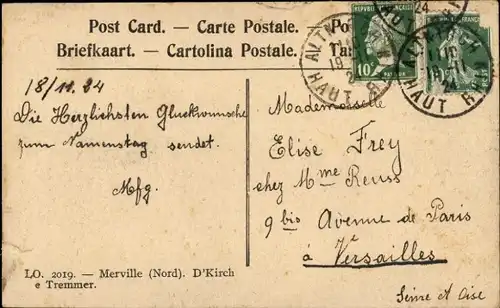 Post Card. — Carte Postale. — Po
Briefkaart. — Cartolina Postale.
18/11.24
Die Herzlichsten Glückwunsche
zum Namenstag sendet.
Mfg.
REPUBLIQUE FRANÇAISE
10c
ALTKIRCH
19
24
HAUT RHIN
ALTKIRCH
24
HAUT RHIN
Mademoiselle
Elise Frey
chez Mme Reuss
9 bis Avenue de Paris
à Versailles
Seine et Oise
I.O. 2019. — Merville (Nord). D'Kirch
e Tremmer.